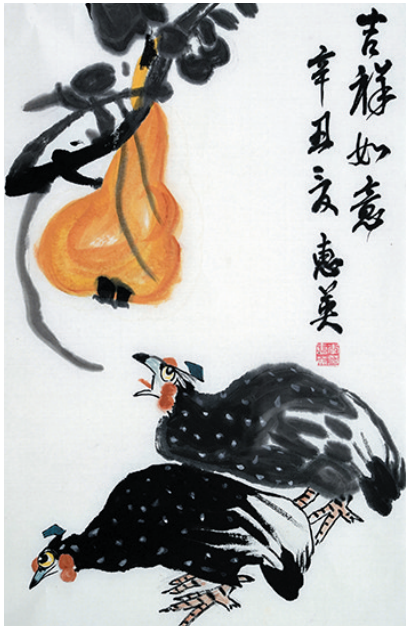 吉祥如意
辛丑夏惠英